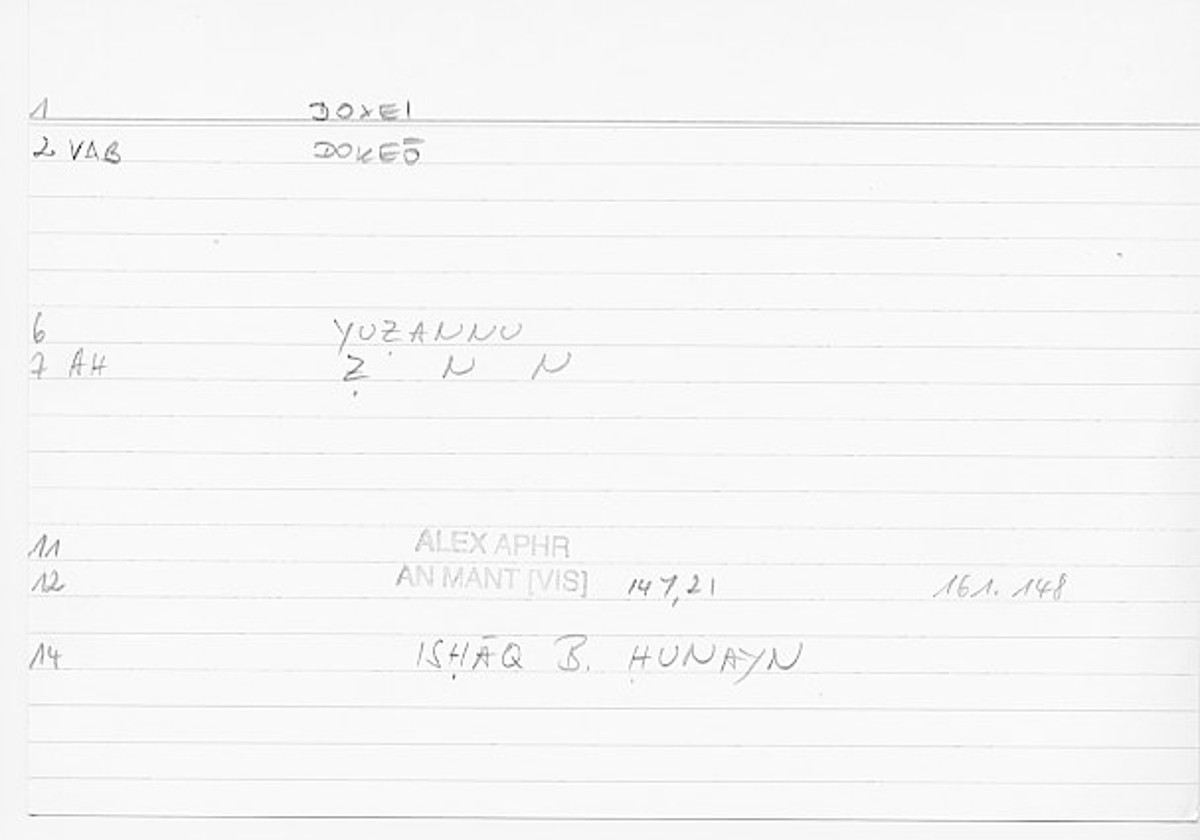 1 DOKEI
2 VAB DOKEŌ
6 YUẒANNU
7 AH Ẓ N N
11 ALEX APHR
12 AN MANT [VIS] 147,21 161.148
14 ISḤĀQ B. ḤUNAYN